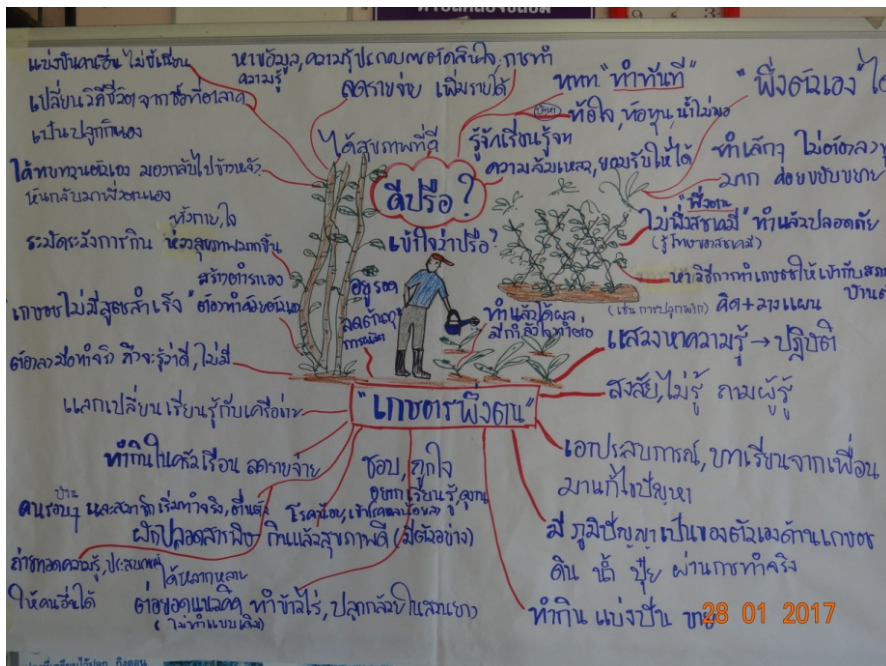 แบ่งปันคนอื่น ไม่ขี้เฉียน
เปลี่ยนวิถีชีวิต จากซื้อที่ตลาด
เป็นปลูกกินเอง
ได้ทบทวนตัวเอง มองกลับไปข้างหลัง
หันกลับมาพึ่งตนเอง
ทั้งกาย,ใจ
ระมัดระวังการกิน ห่วงสุขภาพมากขึ้น
สร้างตำราเอง
เกษตรไม่มีสูตรสำเร็จ ต้องทำด้วยตัวเอง
ต้องลงมือทำจริง ถึงจะรู้ว่าดี,ไม่ดี
แลกเปลี่ยน เรียนรู้กับเครือข่าย
ทำกินในครัวเรือน ลดรายจ่าย
บ้าน
คนรอบๆ และสมาชิกเริ่มทำจริง,ตื่นตัว
ผักปลอดสารพิษ กินแล้วสุขภาพดี (มีตัวอย่าง)
ถ่ายทอดความรู้,ประสบการณ์
ให้คนอื่นได้
ได้หลากหลาย
ต่อยอดแนวคิด ทำข้าวไร่,ปลูกกล้วยในสวนยาง
(ไม่ทำแบบเดิม)
ชอบ,ถูกใจ
อยากเรียนรู้
หาข้อมูล,ความรู้ประกอบการตัดสินใจ การทำ
ความรู้
ลดรายจ่าย เพิ่มรายได้
ได้สุขภาพที่ดี
ดีปรือ?
เข้าใจว่าปรือ?
อยู่รอด
ลดต้นทุน
การผลิต
ทำแล้วได้ผล
มีกำลังใจทำต่อ
"เกษตรพึ่งตน"
ททท. "ทำทันที"
ปัญหา ท้อใจ,ท้อทุน,น้ำไม่พอ
รู้จักเรียนรู้จาก
ความล้มเหลว,ยอมรับให้ได้
"พึ่งตัวเอง"
ทำเล็กๆ ไม่ต้องลงทุน
มาก ค่อยขยับขยาย
"พึ่งตน"
ไม่พึ่งสารเคมี" ทำแล้วปลอดภัย
(รู้โทษของสารเคมี)
หาวิธีการทำเกษตรให้เข้ากับ
(เช่น การปลูกผัก) คิด+วางแผน
แสวงหาความรู้ → ปฏิบัติ
สงสัย,ไม่รู้ ถามผู้รู้
เอาประสบการณ์,บทเรียนจากเพื่อน
มาแก้ไขปัญหา
มีภูมิปัญญาเป็นของตัวเองด้านเกษตร
ดิน น้ำ ปุ๋ย ผ่านการทำจริง
ทำกิน แบ่งปัน ขาย
28 01 2017